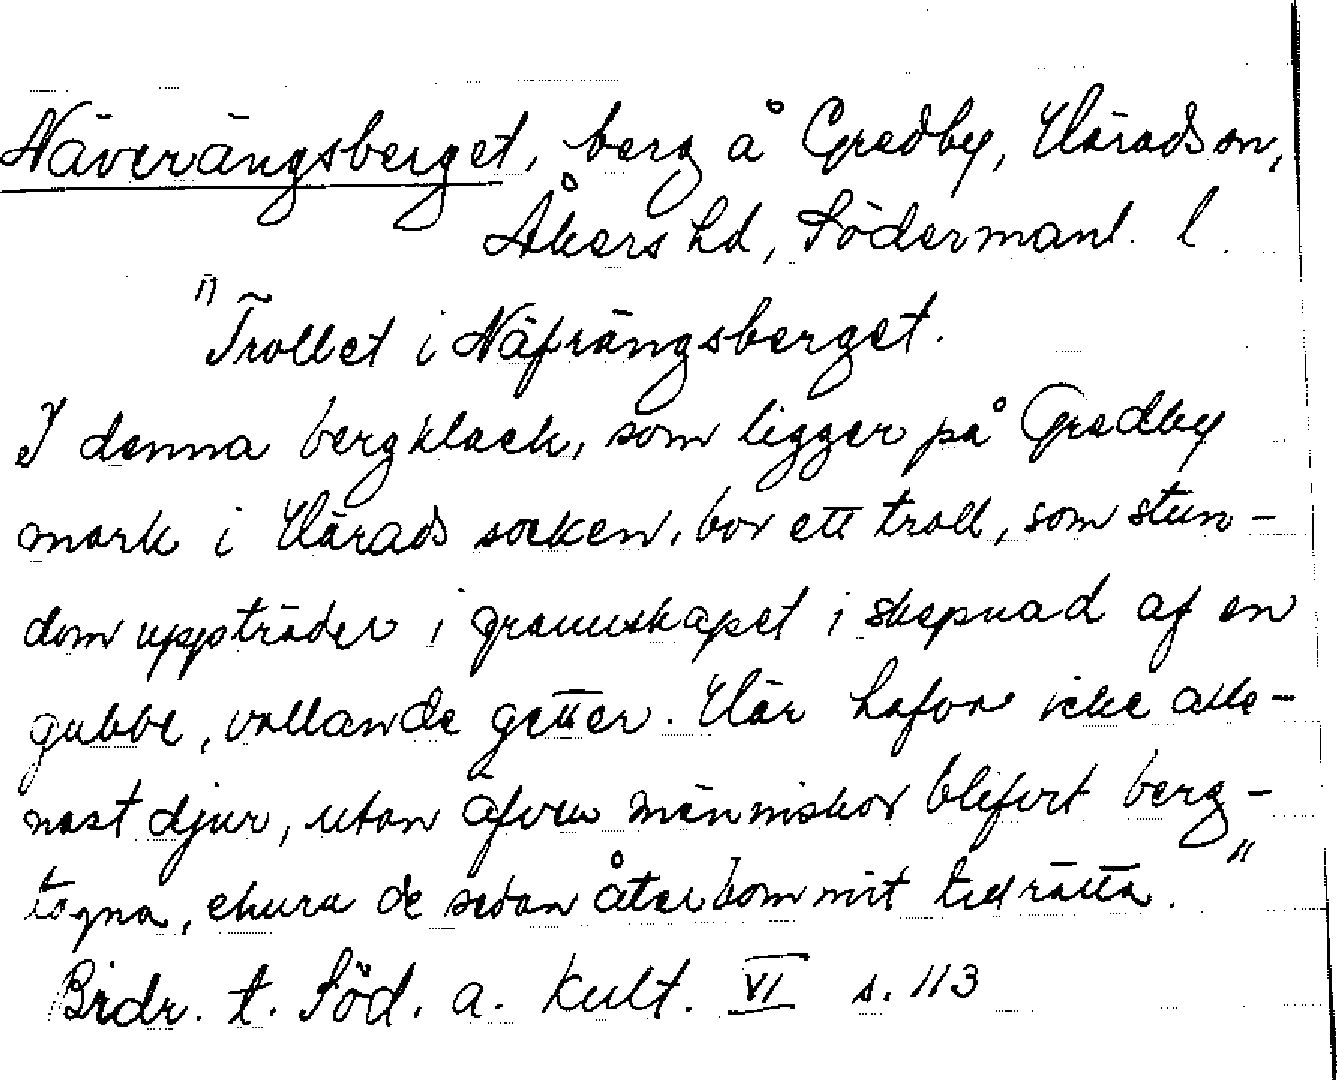 Näverängsberget, berg å Gredby, Härads sn,
Åkers hd, Södermanl. l.
"Trollet i Näfrängsberget.
I denna bergklack, som ligger på Gredby
mark i Härads socken, bor ett troll, som stun-
dom uppträder i grannskapet i skepnad af en
gubbe, vallande getter. Här hafva icke alle-
nast djur, utan äfven människor blifvit berg-
tagna, ehuru de sedan återkommit tillrätta."
Bidr. t. Söd. ä. Kult. VI s. 113